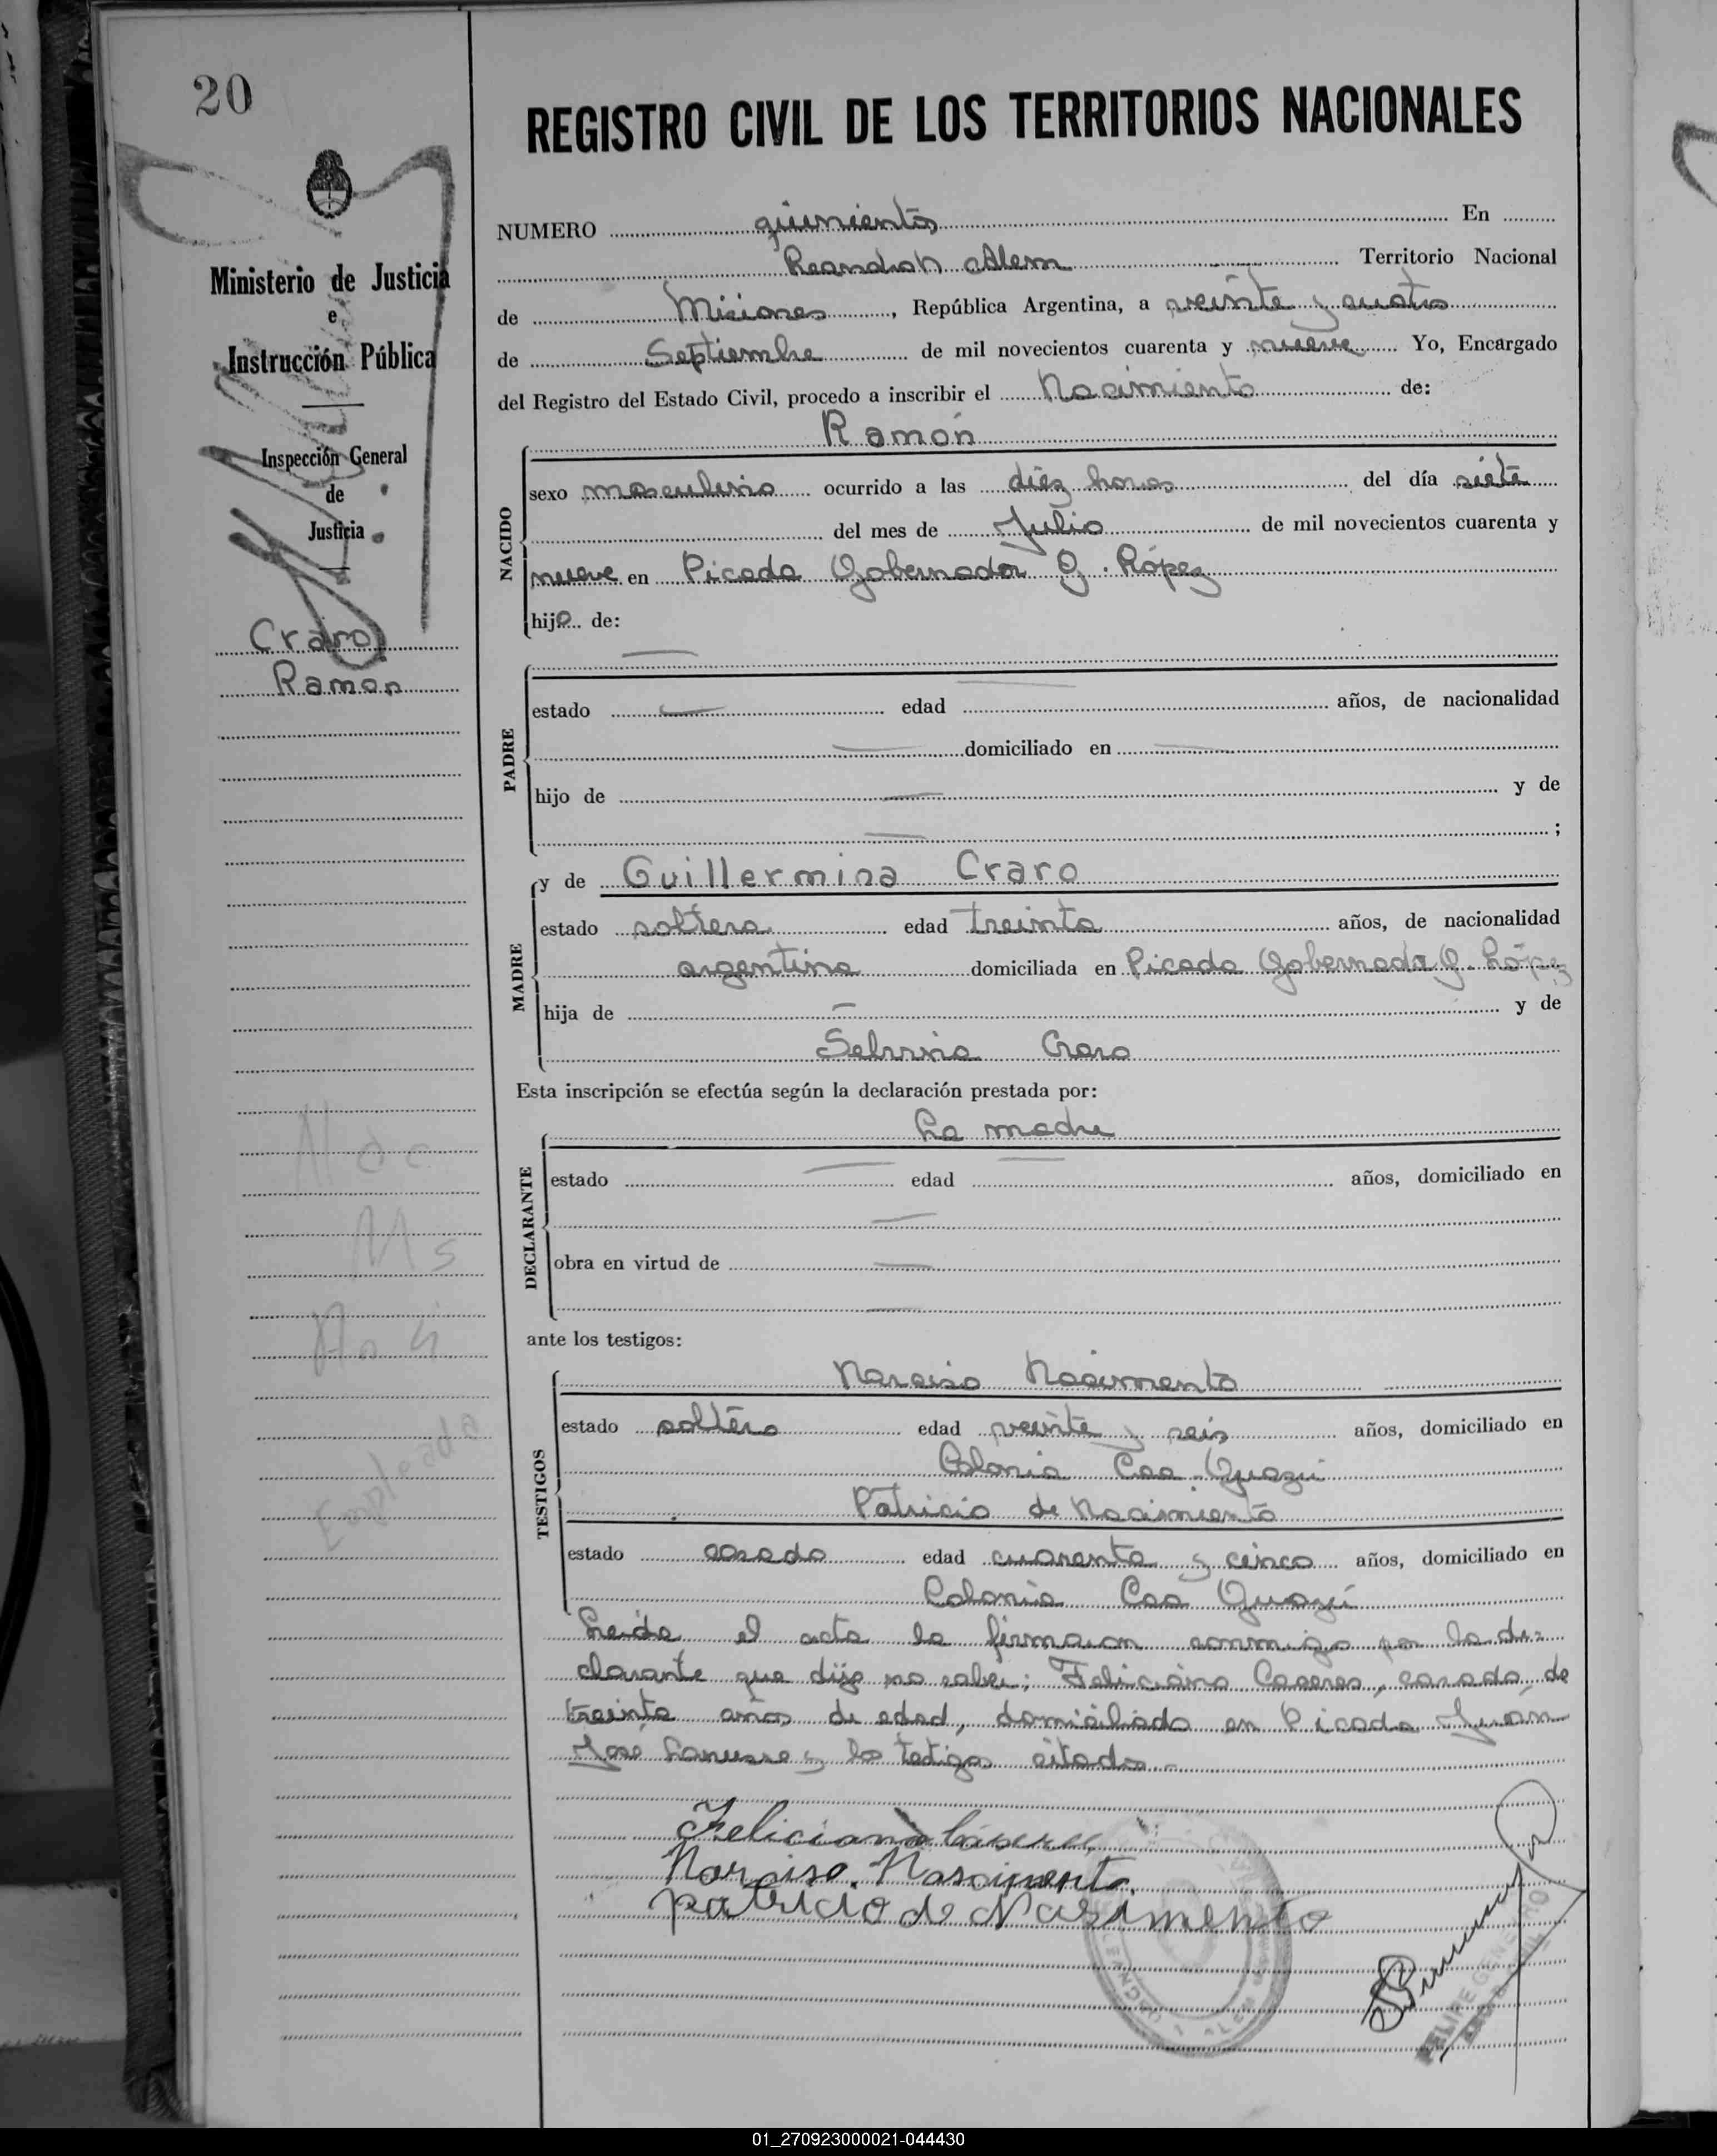 20
REGISTRO CIVIL DE LOS TERRITORIOS NACIONALES
Ministerio de Justicia
e
Instrucción Pública
Inspección General
de
Justicia
Craro
Ramon
NUMERO quinientos En
Leandro N Alem Territorio Nacional
de Misiones, República Argentina, a veinte y cuatro
de Septiembre de mil novecientos cuarenta y nueve Yo, Encargado
del Registro del Estado Civil, procedo a inscribir el Nacimiento de:
Ramón
NACIDO
sexo masculino ocurrido a las diéz horas del día siete
del mes de Julio de mil novecientos cuarenta y
nueve en Picada Gobernador G. López
hijo de:
PADRE
estado edad años, de nacionalidad
domiciliado en
hijo de y de
;
MADRE
y de Guillermina Craro
estado soltera edad treinta años, de nacionalidad
argentina domiciliada en Picada Gobernador G. López
hija de y de
Craro
Esta inscripción se efectúa según la declaración prestada por:
La madre
DECLARANTE
estado edad años, domiciliado en
obra en virtud de
ante los testigos:
TESTIGOS
Narciso Nacimento
estado soltero edad veinte y seis años, domiciliado en
Colonia Caa Guazú
Patricio de Nacimiento
estado casado edad cuarenta y cinco años, domiciliado en
Colonia Caa Guazú
Leida el acta la firmaron conmigo por la de=
clarante que dijo no saber; Feliciano Caseres, casado, de
treinta años de edad, domiciliado en Picada Juan
José Lanusse y los testigos citados.-
Feliciano Caseres
Narciso Nascimento
patricio de Nasimento
LEANDRO N. ALEM
Ndc
Ms
Empleada
01_270923000021-044430